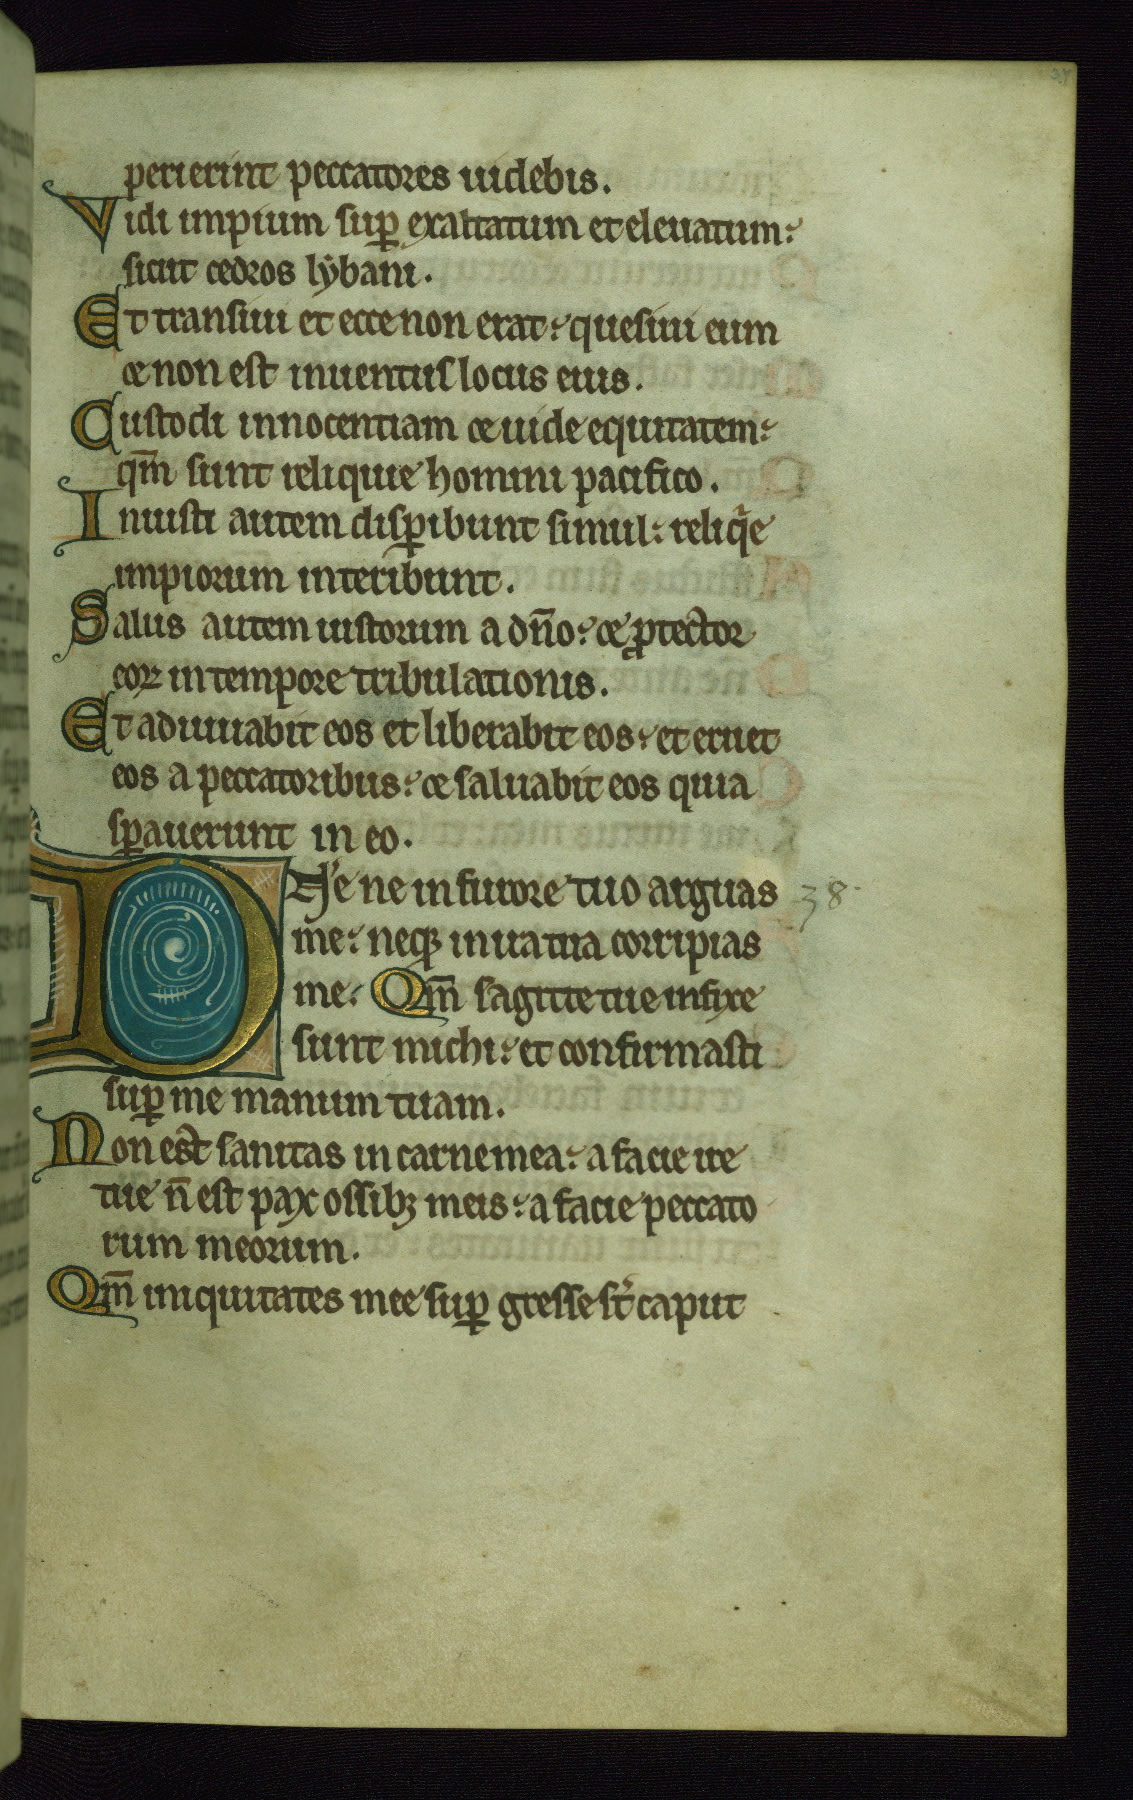 perierint peccatores uidebis.
Vidi impium sup̲ exaltatum et eleuatum:
sicut cedros lẏbani.
Et transiui et ecce non erat: quesiui eum
& non est inuentus locus eius.
Custodi innocentiam & uide equitatem:
qm̄ sunt reliquie homini pacifico.
Iniusti autem disp̲ibunt simul: reliqͥe
impiorum interibunt.
Salus autem iustorum a dn̄o: & ꝓtector
eoꝝ in tempore tribulationis.
Et adiuuabit eos et liberabit eos: et eruet
eos a peccatoribus: & saluabit eos quia
sp̲auerunt in eo.
DNe ne in furore tuo arguas 38.
me: neqꝫ in ira tua corripias
me. Qm̄ sagitte tue infixe
sunt michi: et confirmasti
sup̲ me manum tuam.
Non est sanitas in carne mea: a facie ire
tue n̄ est pax ossibꝫ meis: a facie peccato
rum meorum.
Qm̄ iniquitates mee sup̲ gresse st̄ caput